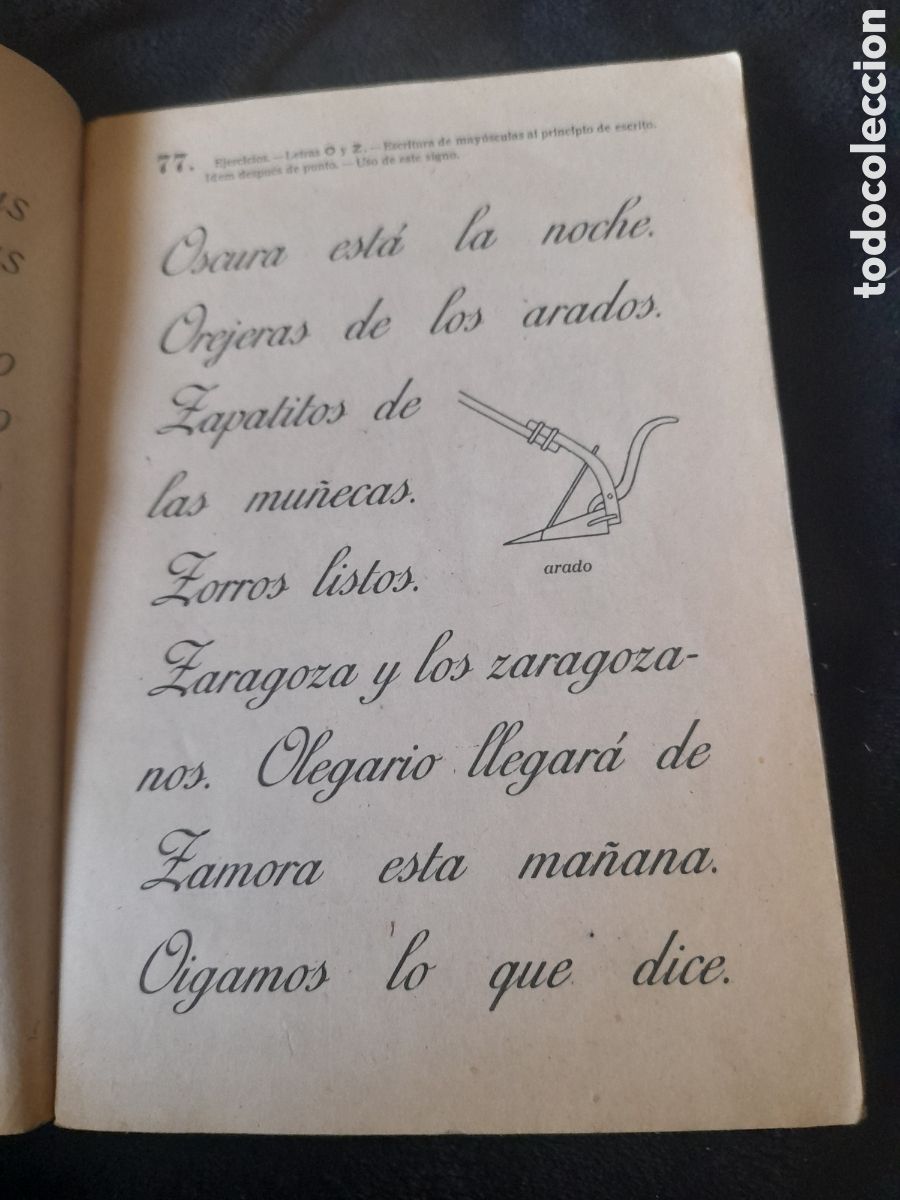 77. Ejercicios. — Letras O y Z. — Escritura de mayúsculas al principio de escrito.
Idem después de punto. — Uso de este signo.
Oscura está la noche.
Orejeras de los arados.
Zapatitos de
las muñecas.
arado
Zorros listos.
Zaragoza y los zaragoza-
nos. Olegario llegará de
Zamora esta mañana.
Oigamos lo que dice.
todocoleccion